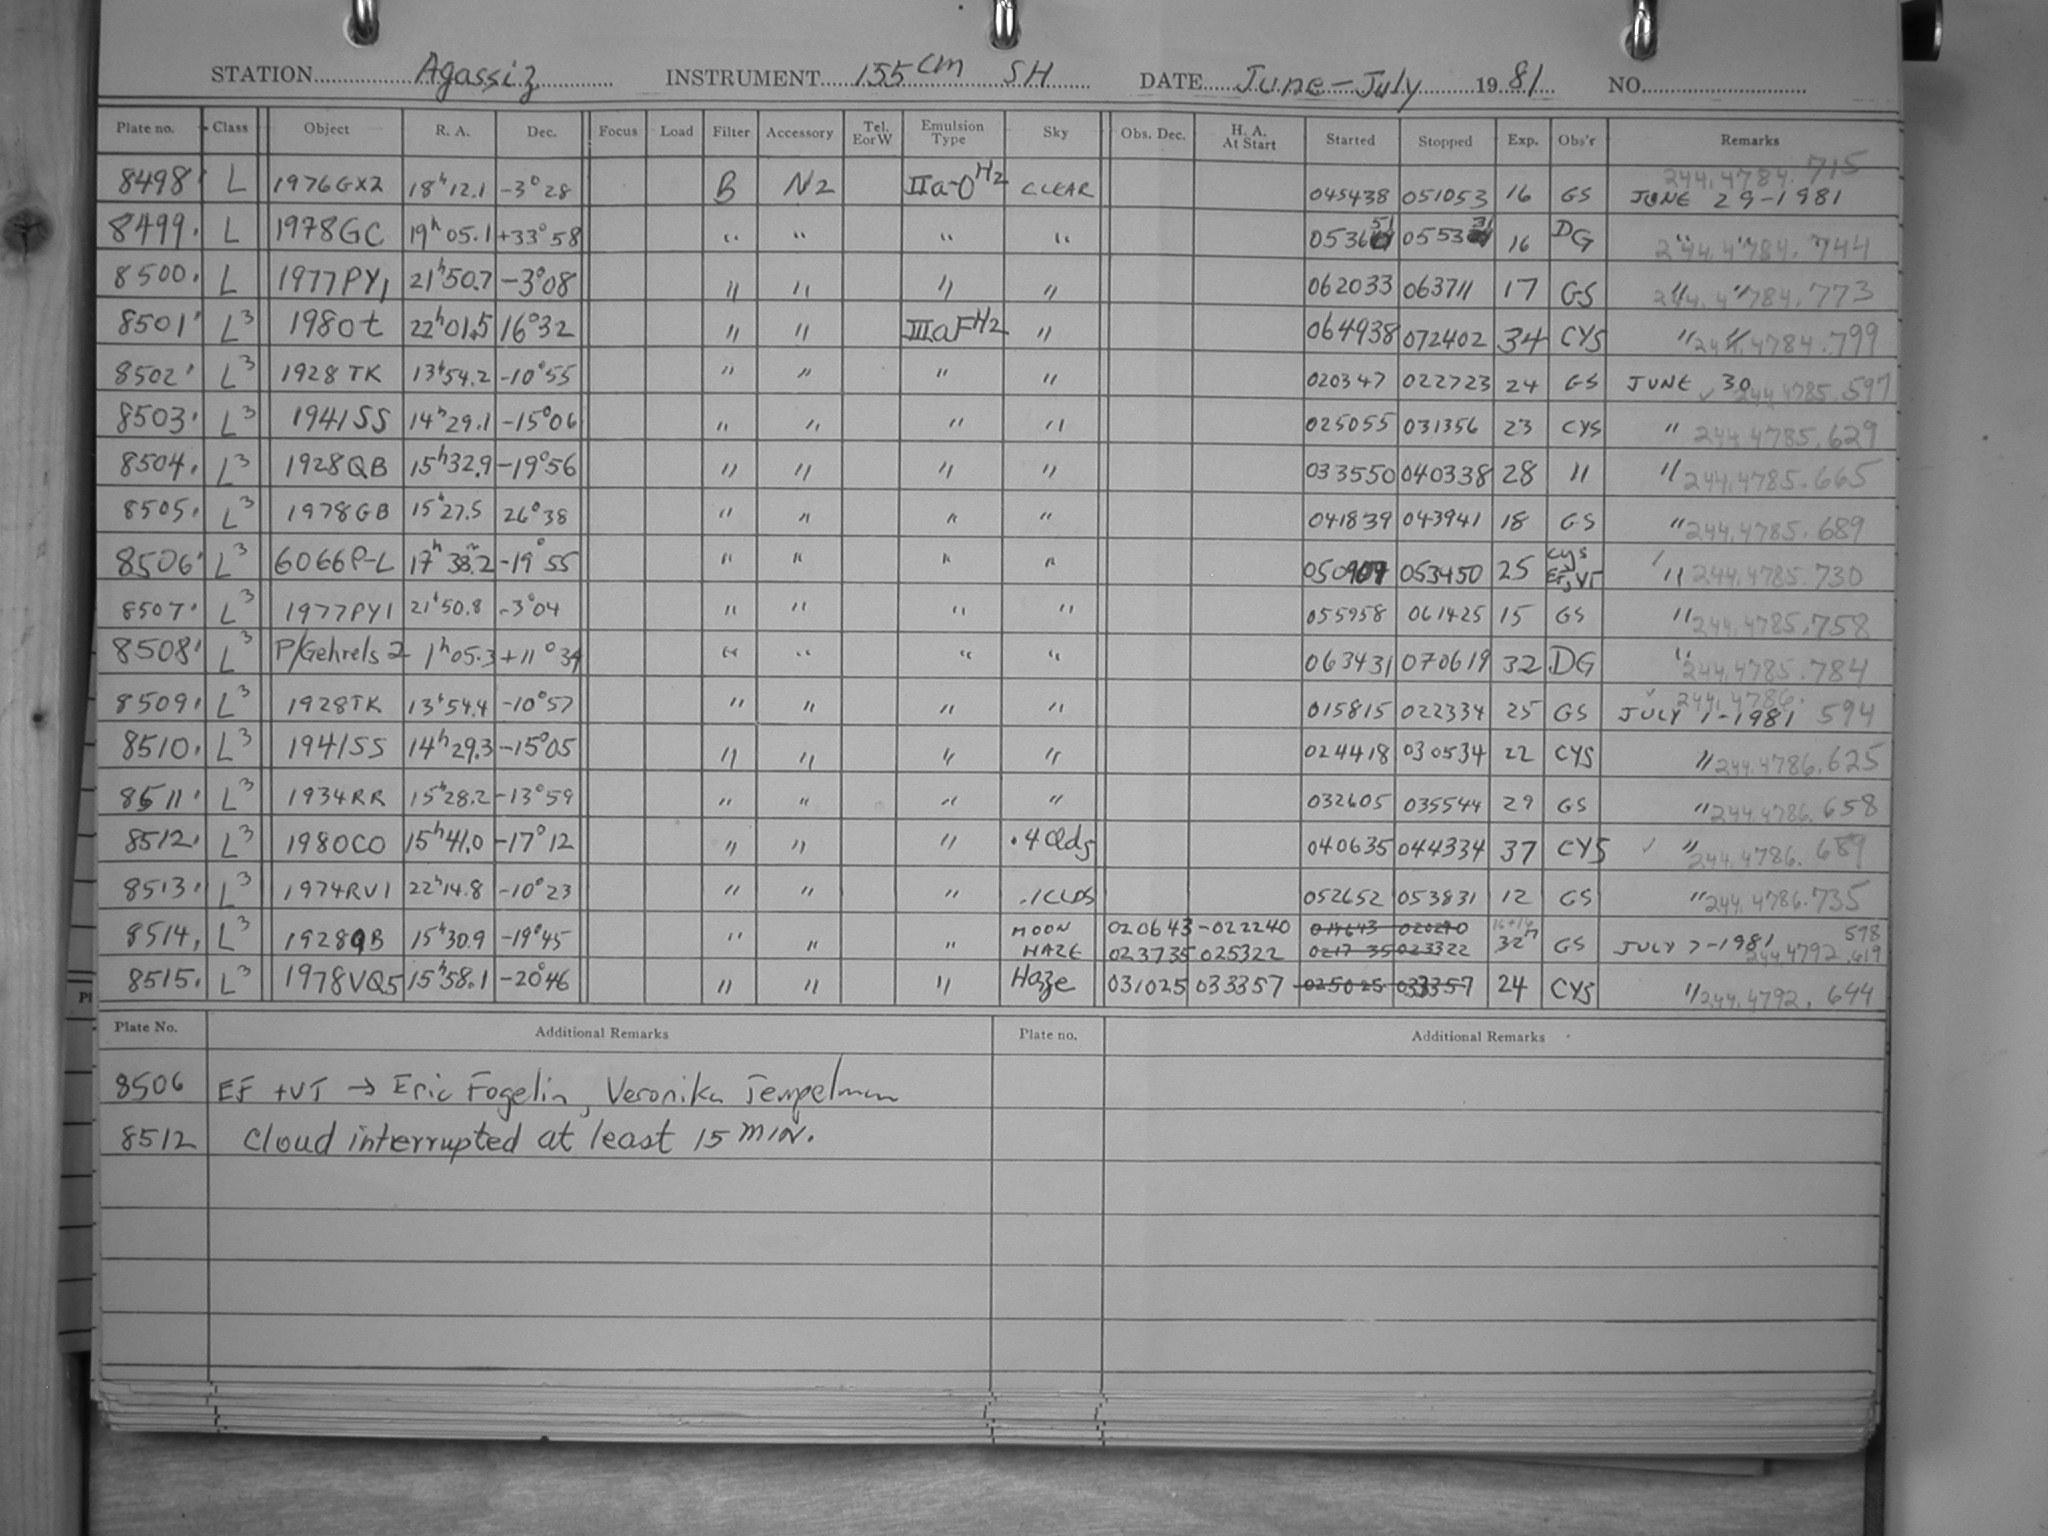 STATION Agassiz INSTRUMENT 155 cm SH DATE June-July 1981 NO.
Plate no. Class Object R. A. Dec. Focus Load Filter Accessory Tel. E or W Emulsion Type Sky Obs. Dec. H. A. At Start Started Stopped Exp. Obs'r Remarks
8498 L 1976GX2 18h12.1 -3°28 B N2 IIa-O H2 CLEAR 045438 051053 16 GS 244.4784.715 JUNE 29-1981
8499 L 1978GC 19h05.1 +33°58 " " " " 053651 055331 16 DG " " 244.4784.744
8500 L 1977PY1 21h50.7 -3°08 " " " " 062033 063711 17 GS " " 244.4784.773
8501 L3 1980t 22h01.5 16°32 " " IIIaF H2 " 064938 072402 34 CYS " " 244.4784.799
8502 L3 1928TK 13h54.2 -10°55 " " " " 020347 022723 24 GS JUNE 30 244.4785.597
8503 L3 1941SS 14h29.1 -15°06 " " " " 025055 031356 23 CYS " 244.4785.629
8504 L3 1928QB 15h32.9 -19°56 " " " " 033550 040338 28 " " 244.4785.665
8505 L3 1978GB 15h27.5 26°38 " " " " 041839 043941 18 GS " 244.4785.689
8506 L3 6066P-L 17h38.2 -19°55 " " " " 050907 053450 25 CYS EF, VT " 244.4785.730
8507 L3 1977PY1 21h50.8 -3°04 " " " " 055958 061425 15 GS " 244.4785.758
8508 L3 P/Gehrels 2 1h05.3 +11°34 " " " " 063431 070619 32 DG " 244.4785.784
8509 L3 1928TK 13h54.4 -10°57 " " " " 015815 022334 25 GS JULY 1-1981 244.4786.594
8510 L3 1941SS 14h29.3 -15°05 " " " " 024418 030534 22 CYS " 244.4786.625
8511 L3 1934RR 15h28.2 -13°59 " " " " 032605 035544 29 GS " 244.4786.658
8512 L3 1980CO 15h41.0 -17°12 " " " .4 Clds 040635 044334 37 CYS " 244.4786.689
8513 L3 1974RV1 22h14.8 -10°23 " " " .1CLDS 052652 053831 12 GS " 244.4786.735
8514 L3 1928QB 15h30.9 -19°45 " " " MOON 020643-022240 16+16 32m GS JULY 7-1981 598
HAZE 023735 025322 0217 35 023322 244.4792.619
8515 L3 1978VQ5 15h58.1 -20°46 " " " Haze 031025 033357 025025 033357 24 CYS " 244.4792.644
Plate No. Additional Remarks Plate no. Additional Remarks
8506 EF + VT → Eric Fogelin, Veronika Tempelman
8512 Cloud interrupted at least 15 MIN.